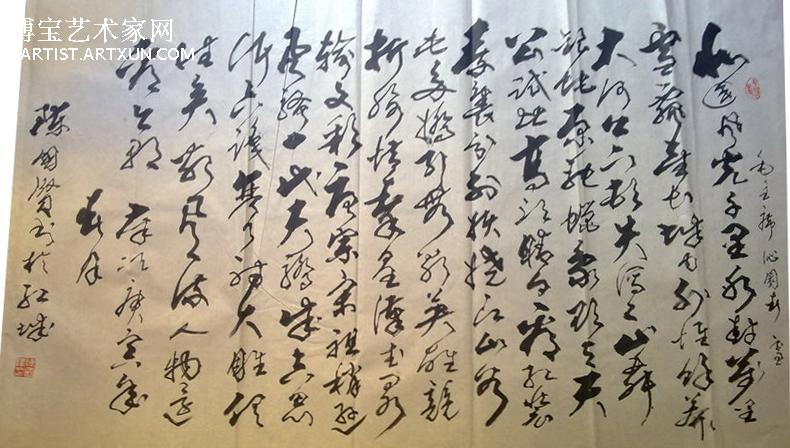 博宝艺术家网
ARTIST.ARTXUN.COM
毛主席沁园春 雪
北国风光千里冰封万里
雪飘望长城内外惟馀莽莽
大河上下顿失滔滔山舞
银蛇原驰蜡象欲与天
公试比高须晴日看红装
素裹分外妖娆江山如
此多娇引无数英雄竞
折腰惜秦皇汉武略
输文彩唐宗宋祖稍逊
风骚一代天骄成吉思
汗只识弯弓射大雕俱
往矣数风流人物还
看今朝 岁次庚寅年
春月
国贤书于红城